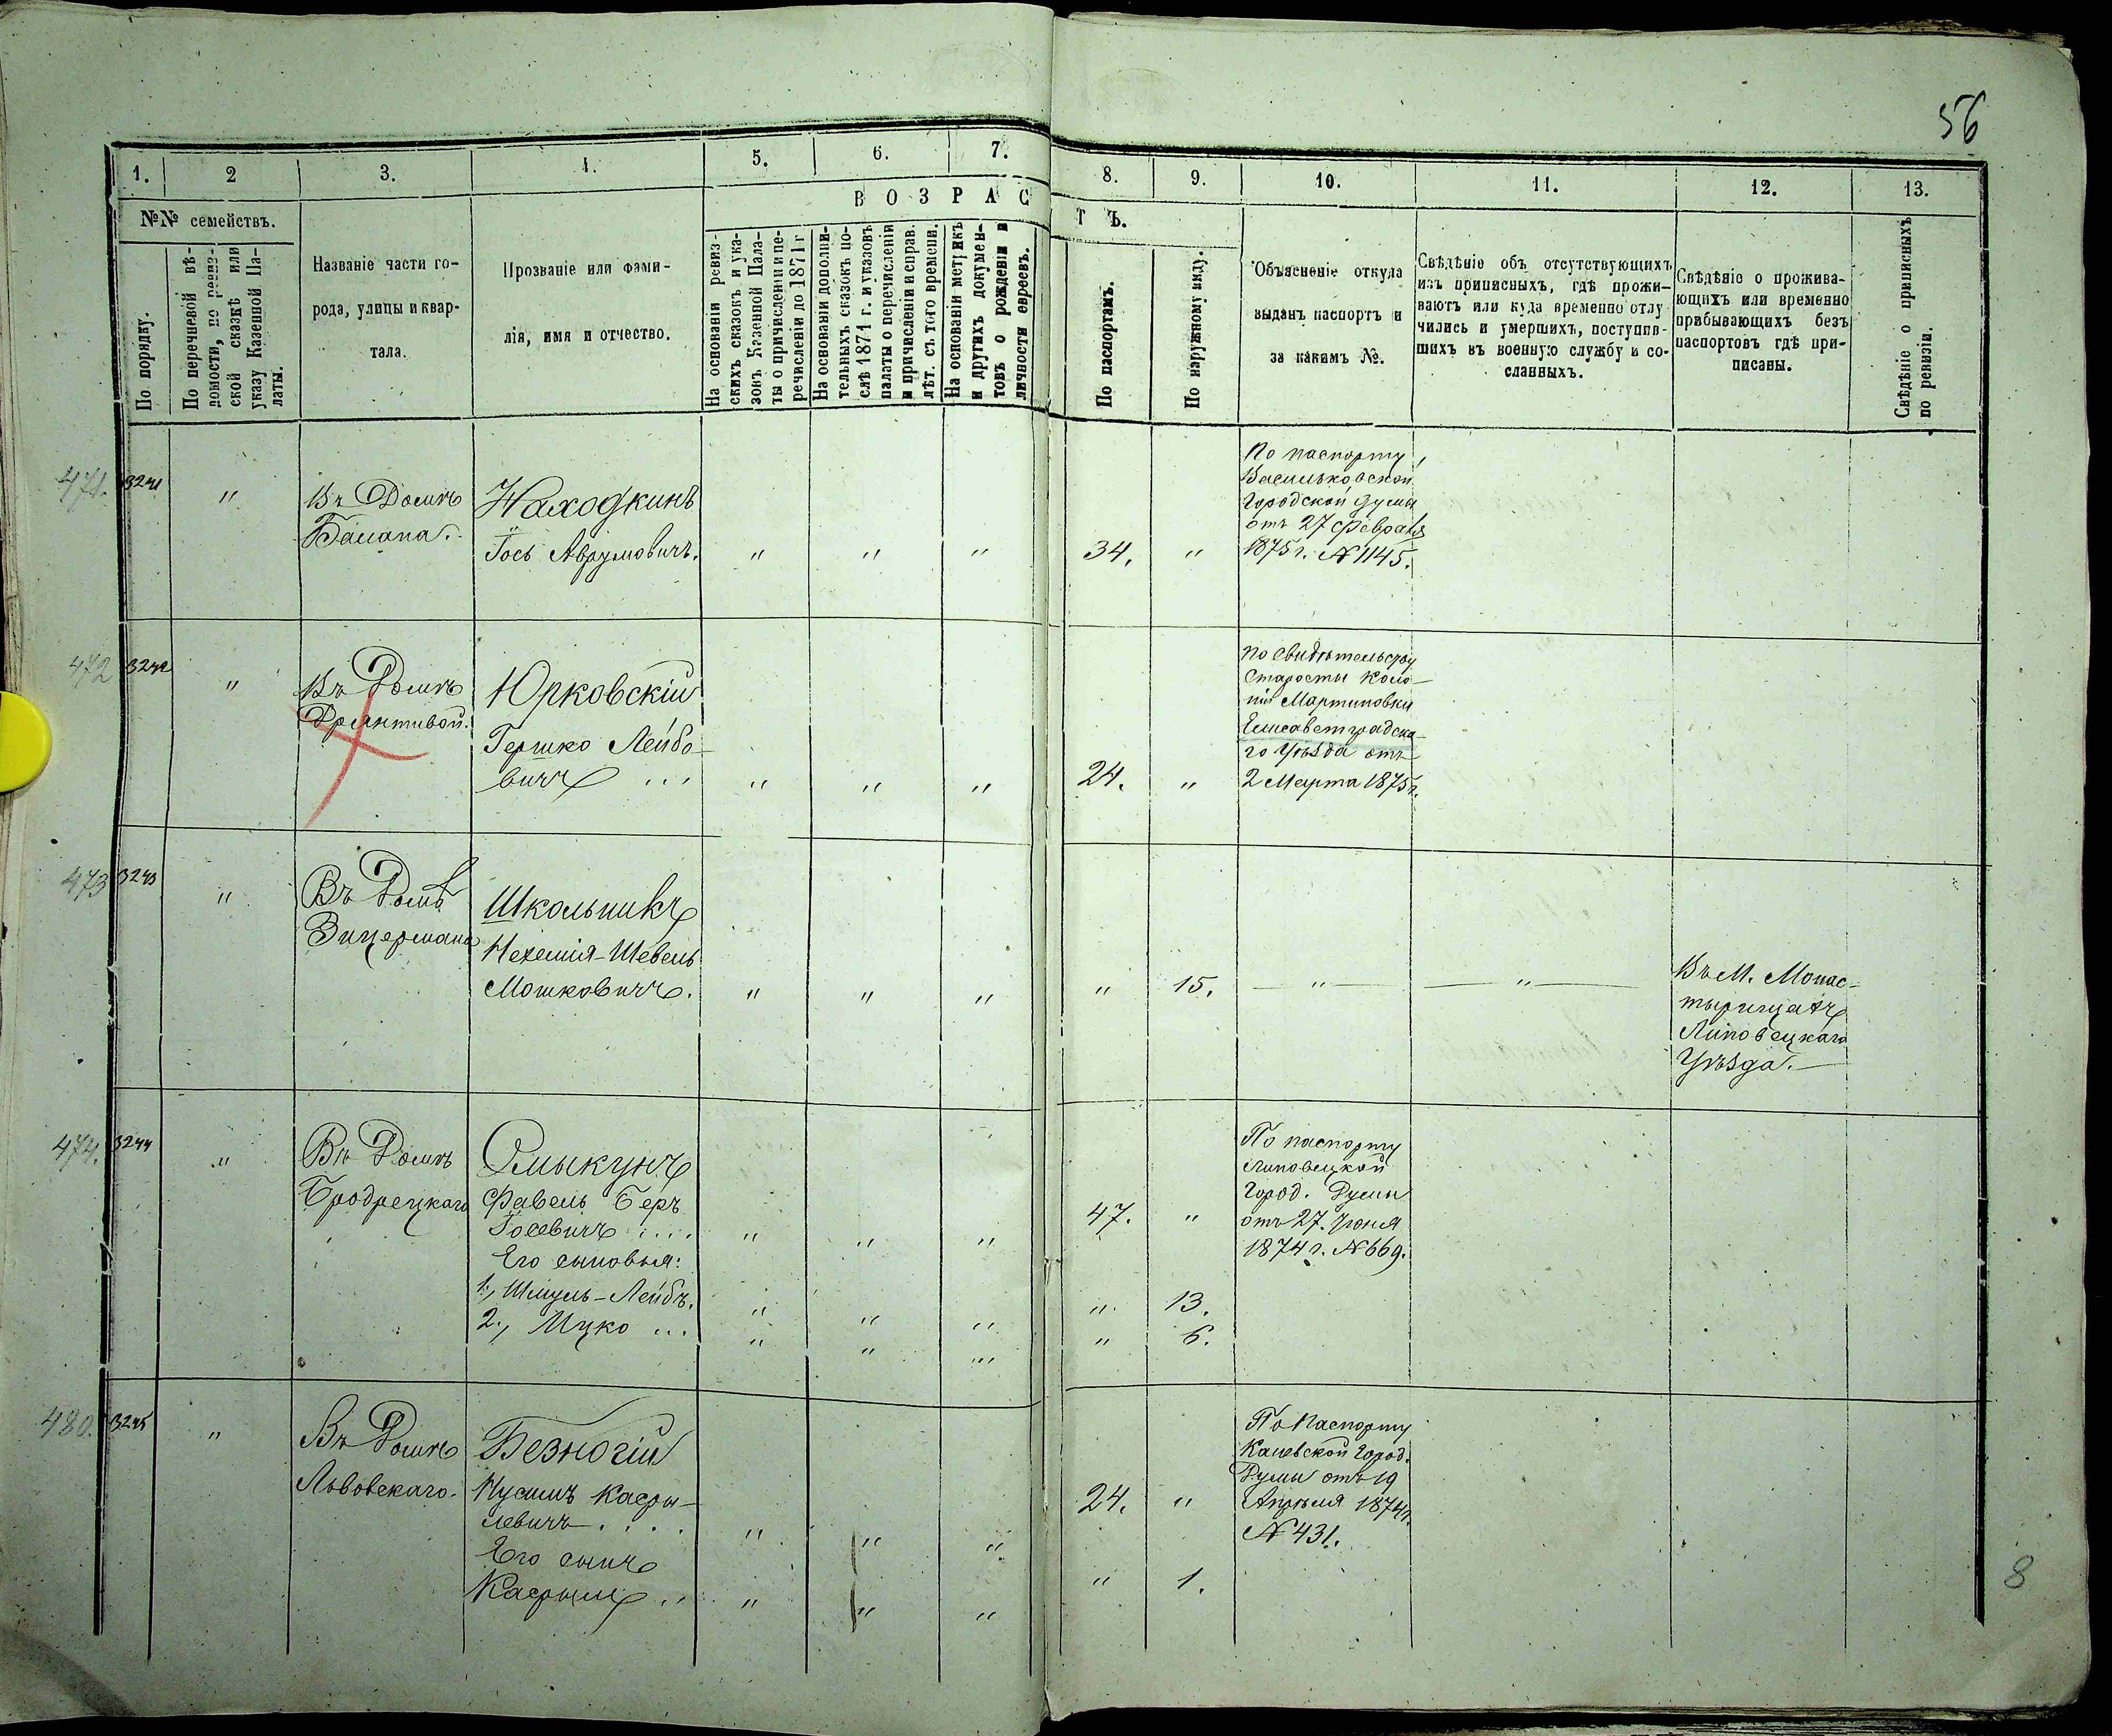 56
1.
2
3.
4.
5.
6.
7.
8.
9.
10.
11.
12.
13.
№№ семействъ.
ВОЗРАСТЪ.
По порядку.
По перечневой вѣ-
домости, по ревиз-
ской сказкѣ или
указу Казенной Па-
латы.
Названіе части го-
рода, улицы и квар-
тала.
Прозваніе или фами-
лія, имя и отчество.
На основаніи ревиз-
скихъ сказокъ и ука-
зовъ Казенной Пала-
ты о причисленіи и пе-
речисленіи до 1871 г.
На основаніи дополни-
тельныхъ сказокъ по-
слѣ 1871 г. и указовъ
палаты о перечисленіи
и причисленіи и справ.
лѣт. съ того времени.
На основаніи метрикъ
и другихъ докумен-
товъ о рожденіи и
личности евреевъ.
По паспортамъ.
По наружному виду.
Объясненіе откуда
выданъ паспортъ и
за какимъ №.
Свѣдѣніе объ отсутствующихъ
изъ приписныхъ, гдѣ прожи-
ваютъ или куда временно отлу
чились и умершихъ, поступив-
шихъ въ военную службу и со-
сланныхъ.
Свѣдѣніе о прожива-
ющихъ или временно
прибывающихъ безъ
паспортовъ гдѣ при-
писаны.
Свѣдѣніе о приписныхъ
по ревизіи.
471. 3241 "
Въ Домѣ
Находкинъ
Іось Аврумовичъ. " " " 34. "
По паспорту
Васильковской
Городской Думы
отъ 27 Февраля
1875 г. N 1145.
472 3242 "
Въ Домѣ
Юрковскій
Гершко Лейбо-
вичъ ... " " " 24. "
По свидѣтельству
Старосты Коло-
ніи Мартиновки
Елисаветградска-
го Уѣзда отъ
2 Марта 1875 г.
473 3243 "
Въ Домѣ
Зицермана
Школьникъ
Нехемія-Шевель
Мошковичъ. " " " " 15. " "
Въ М. Монас-
тырищахъ
Липовецкаго
Уѣзда.
474. 3244 "
Въ Домѣ
Бродрецкаго
Смыкунъ
Фавель Беръ
Іосевичъ .... " " " 47. "
Его сыновья:
1., Шмуль-Лейбъ. " " " " 13.
2., Ицко ... " " " " 6.
По паспорту
Липовецкой
Город. Думы
отъ 27. Іюня
1874 г. N 669.
480. 3245 "
Въ Домѣ
Львовскаго.
Безногій
Нусимъ Касры-
левичъ .... " " " 24. "
Его сынъ
Касрыль .. " " " " 1.
По Паспорту
Каневской Город.
Думы отъ 19
Апрѣля 1874 г.
N 431.
8